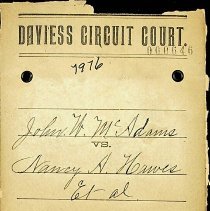 DAVIESS CIRCUIT COURT.
060646
7976
John W. McAdams
VS.
Nancy A Hawes
Et al